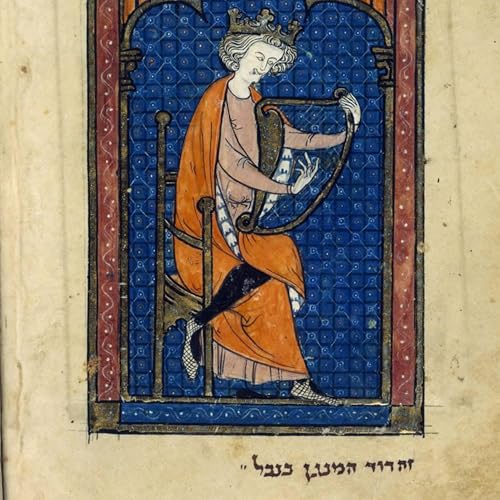 זה דוד המנגן בנבל ״